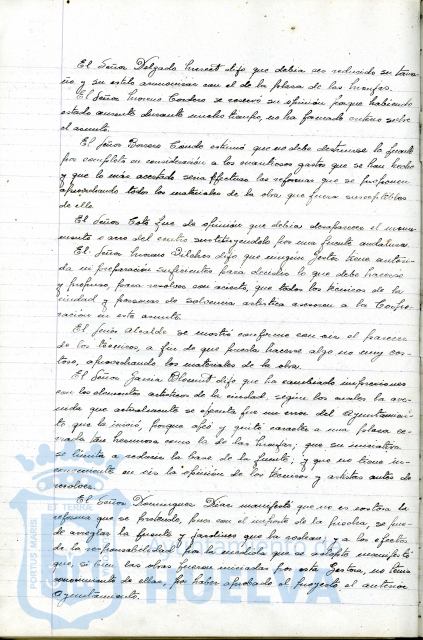 El Señor Delgado dijo que debía ser reducido su tama-
ño y su estilo armonizar con el de la plaza de las Monjas.
El Señor Moreno Cordero se reservó su opinión porque habiendo
estado ausente durante mucho tiempo, no ha formado criterio sobre
el asunto.
El Señor Borrero Conde estimó que no debe destruirse la fuente
por completo en consideración a los cuantiosos gastos que se han hecho
y que lo más acertado sería efectuar las reformas que se proponen
aprovechando todos los materiales de la obra que fueran susceptibles
de ello.
El Señor Coto fue de opinión que debía desaparecer el monu-
mento o arco del centro sustituyéndolo por una fuente andaluza.
El Señor Moreno dijo que ningún Gestor tiene autori-
dad ni preparación suficientes para decidir lo que debe hacerse
y propuso, para resolver con acierto, que todos los técnicos de la
ciudad y personas de solvencia artística asesoren a la Corpo-
ración en este asunto.
El Señor Alcalde se mostró conforme con el parecer
de los técnicos, a fin de que pueda hacerse algo no muy cos-
toso, aprovechando los materiales de la obra.
El Señor García dijo que ha cambiado impresiones
con los elementos artísticos de la ciudad, según los cuales la ave-
nida que actualmente se ejecuta fue un error del Ayuntamien-
to que la inició, porque afeó y quitó carácter a una plaza ce-
rrada tan hermosa como la de las Monjas; que su iniciativa
se limita a reducir la base de la fuente, y que no tiene in-
conveniente en oir la opinión de los técnicos y artistas antes de
resolver.
El Señor Domínguez manifestó que no es costosa la
reforma que se pretende, pues con el importe de la piedra, se pue-
de arreglar la fuente y jardines que la rodean, y a los efectos
de la responsabilidad por la medida que se adopte manifestó
que, si bien las obras fueron iniciadas por esta Gestora, no tenía
conocimiento de ellas, por haber aprobado el proyecto el anterior
Ayuntamiento.
PORTUS MARIS ET TERRAE
HUELVA